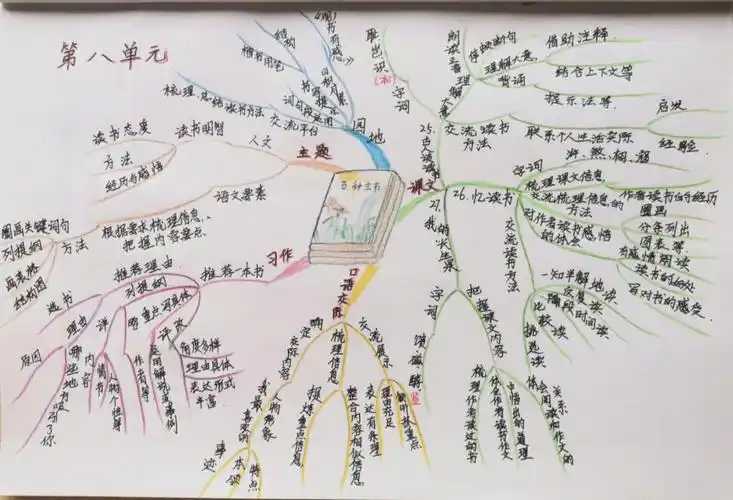 第八单元
主题
人文
读书明智
读书态度
方法
经历与感悟
语文要素
根据要求梳理信息、
把握内容要点.
方法
圈画关键词句
列提纲
画表格
结构图
习作
推荐一本书
推荐理由
列提纲
选书
理由
原因
哪些地方吸引了你
内容
重点写具体
作者等
评改
角度多样
理由具体
表达形式
丰富.
口语交际
确定
交际内容
梳理信息
提炼重点信息
整合内容相似信息
交流展示
表达有条理
理由充足
事迹
本领
特点
园地
交流平台
梳理,总结读书方法
词句段运用
书写提示
楷书用笔
结构
日积月累
课文
25.古人谈读书
字词
朗读
理解大意
停顿断句
借助注释.
结合上下文等
背诵
提示法等.
交流读书
方法
联系个人生活实际
启发
经验.
26.忆读书
字词
梳理课文信息
交流梳理信息的
方法
圈画
分条列出
图表等
对作者读书感悟
的体会
作者读书的经历
交流读书方法
一知半解地读
反复读
隔段时间读
比较读
挑选读
有感情朗读
读书的好处
写对书的感受.
27.我的"长生果"
字词
把握课文内容
梳理作者读过的书
体会作者读书作文
中悟出的道理
体会阅读和作文的
关系